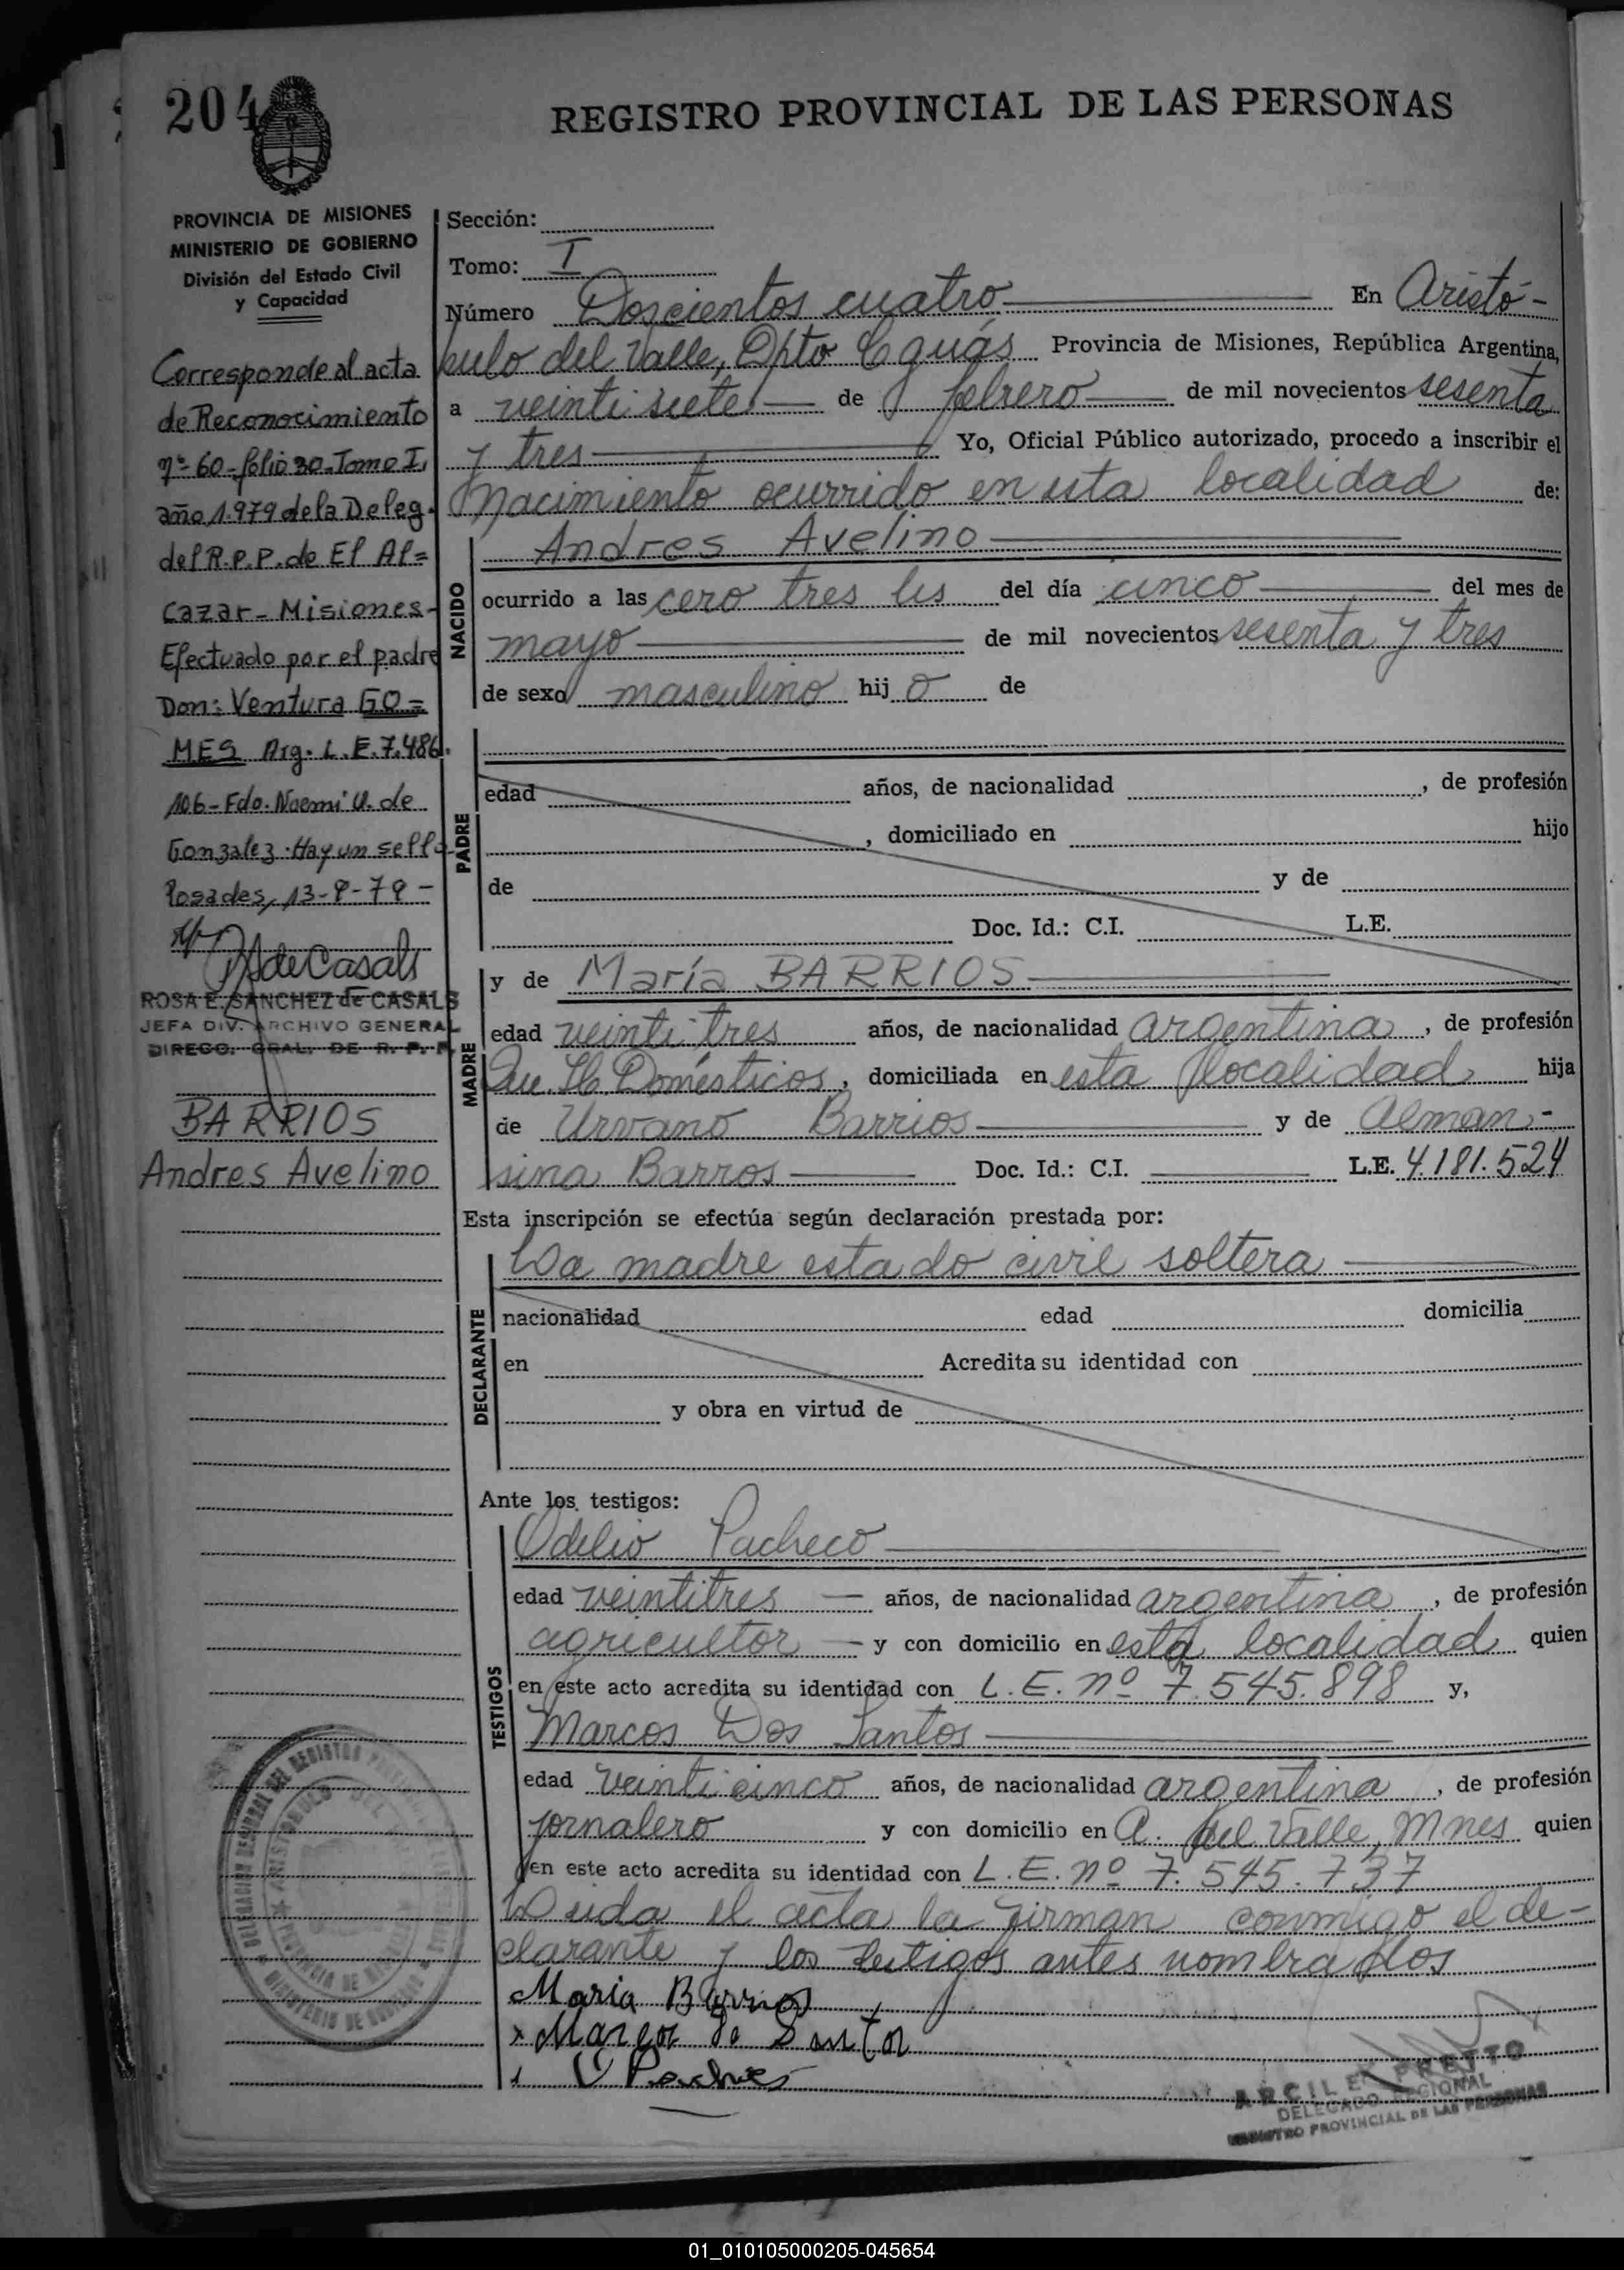 204
REGISTRO PROVINCIAL DE LAS PERSONAS
PROVINCIA DE MISIONES
MINISTERIO DE GOBIERNO
División del Estado Civil
y Capacidad
Corresponde al acta
de Reconocimiento
nº 60-folio 30-Tomo I,
año 1.979 de la Deleg.
del R.P.P. de El Al=
cazar-Misiones-
Efectuado por el padre
Don: Ventura GO=
MES Arg. L.E. 7.486.
106-Fdo. Noemí U. de
Gonzalez. Hay un sello
Posadas, 13-8-79-
de Casals
ROSA E. SANCHEZ de CASALS
JEFA DIV. ARCHIVO GENERAL
DIRECC. GRAL. DE R. P. P.
BARRIOS
Andres Avelino
Sección:
Tomo: I
Número Doscientos cuatro En Aristó-
bulo del Valle, Dpto Cguás Provincia de Misiones, República Argentina,
a veinti siete de febrero de mil novecientos sesenta
y tres Yo, Oficial Público autorizado, procedo a inscribir el
Nacimiento ocurrido en esta localidad de:
NACIDO
Andres Avelino
ocurrido a las cero tres hs del día cinco del mes de
mayo de mil novecientos sesenta y tres
de sexo masculino hijo de
PADRE
edad años, de nacionalidad , de profesión
, domiciliado en hijo
de y de
Doc. Id.: C.I. L.E.
MADRE
y de María BARRIOS
edad veinti tres años, de nacionalidad argentina, de profesión
Qu. Hs. Domésticos, domiciliada en esta localidad hija
de Urvano Barrios y de Alman-
sina Barros Doc. Id.: C.I. L.E. 4.181.524
Esta inscripción se efectúa según declaración prestada por:
DECLARANTE
La madre estado civil soltera
nacionalidad edad domicilia
en Acredita su identidad con
y obra en virtud de
Ante los testigos:
TESTIGOS
Odelio Pacheco
edad veintitres años, de nacionalidad argentina, de profesión
agricultor y con domicilio en esta localidad quien
en este acto acredita su identidad con L.E. nº 7.545.898 y,
Marcos Dos Santos
edad veinti cinco años, de nacionalidad argentina, de profesión
jornalero y con domicilio en A. del Valle, Mnes quien
en este acto acredita su identidad con L.E. nº 7.545.737
Leida el acta la firman conmigo el de-
clarante y los testigos antes nombrados
Maria Barrios
x Marcos do Santos
O Pacheco
PRETTO
DELEGADO REGIONAL
REGISTRO PROVINCIAL DE LAS PERSONAS
01_010105000205-045654